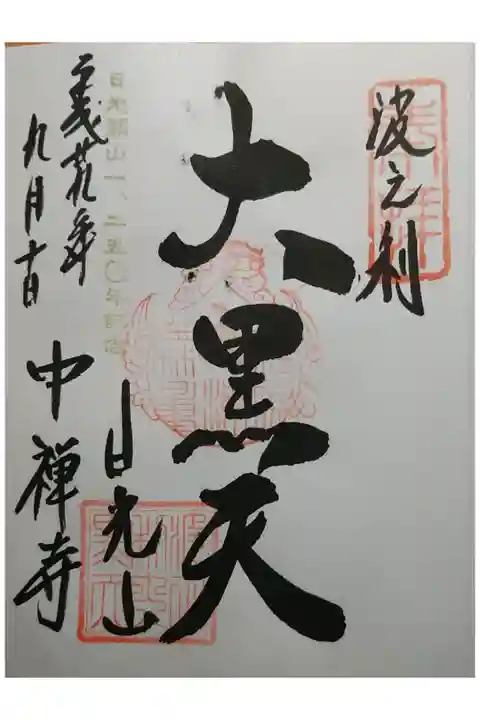 波之利
大黒天
日光山
日光開山一、二五〇年記念
年
九月十日
中禅寺